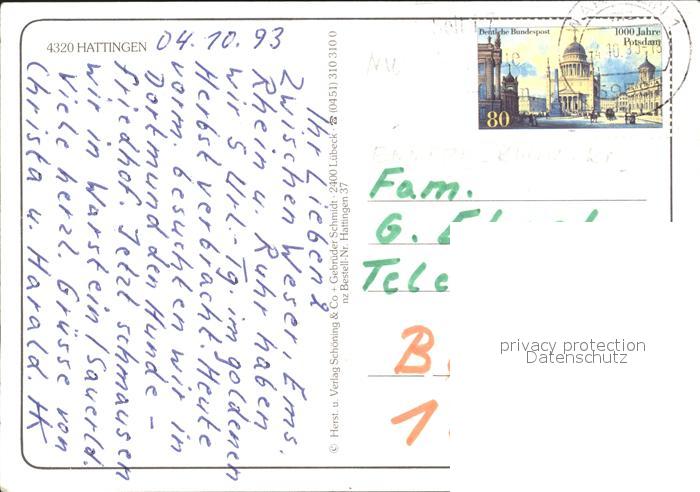 4320 HATTINGEN
04.10.93
Ihr Lieben 2
Zwischen Weser, Ems.
Rhein u. Ruhr haben
wir 5 Url.-Tg. im goldenen
Herbst verbracht. Heute
vorm. besuchten wir in
Dortmund den Hunde-
friedhof. Jetzt schmausen
wir in Warstein/Sauerld.
Viele herzl. Grüsse von
Christa u. Harald. HK
© Herst. u. Verlag Schöning & Co + Gebrüder Schmidt · 2400 Lübeck ☎ (0451) 310 310 0
nz Bestell-Nr. Hattingen 37
Deutsche Bundespost
1000 Jahre
Potsdam
80
Fam.
G.
Tele
B
1
privacy protection
Datenschutz